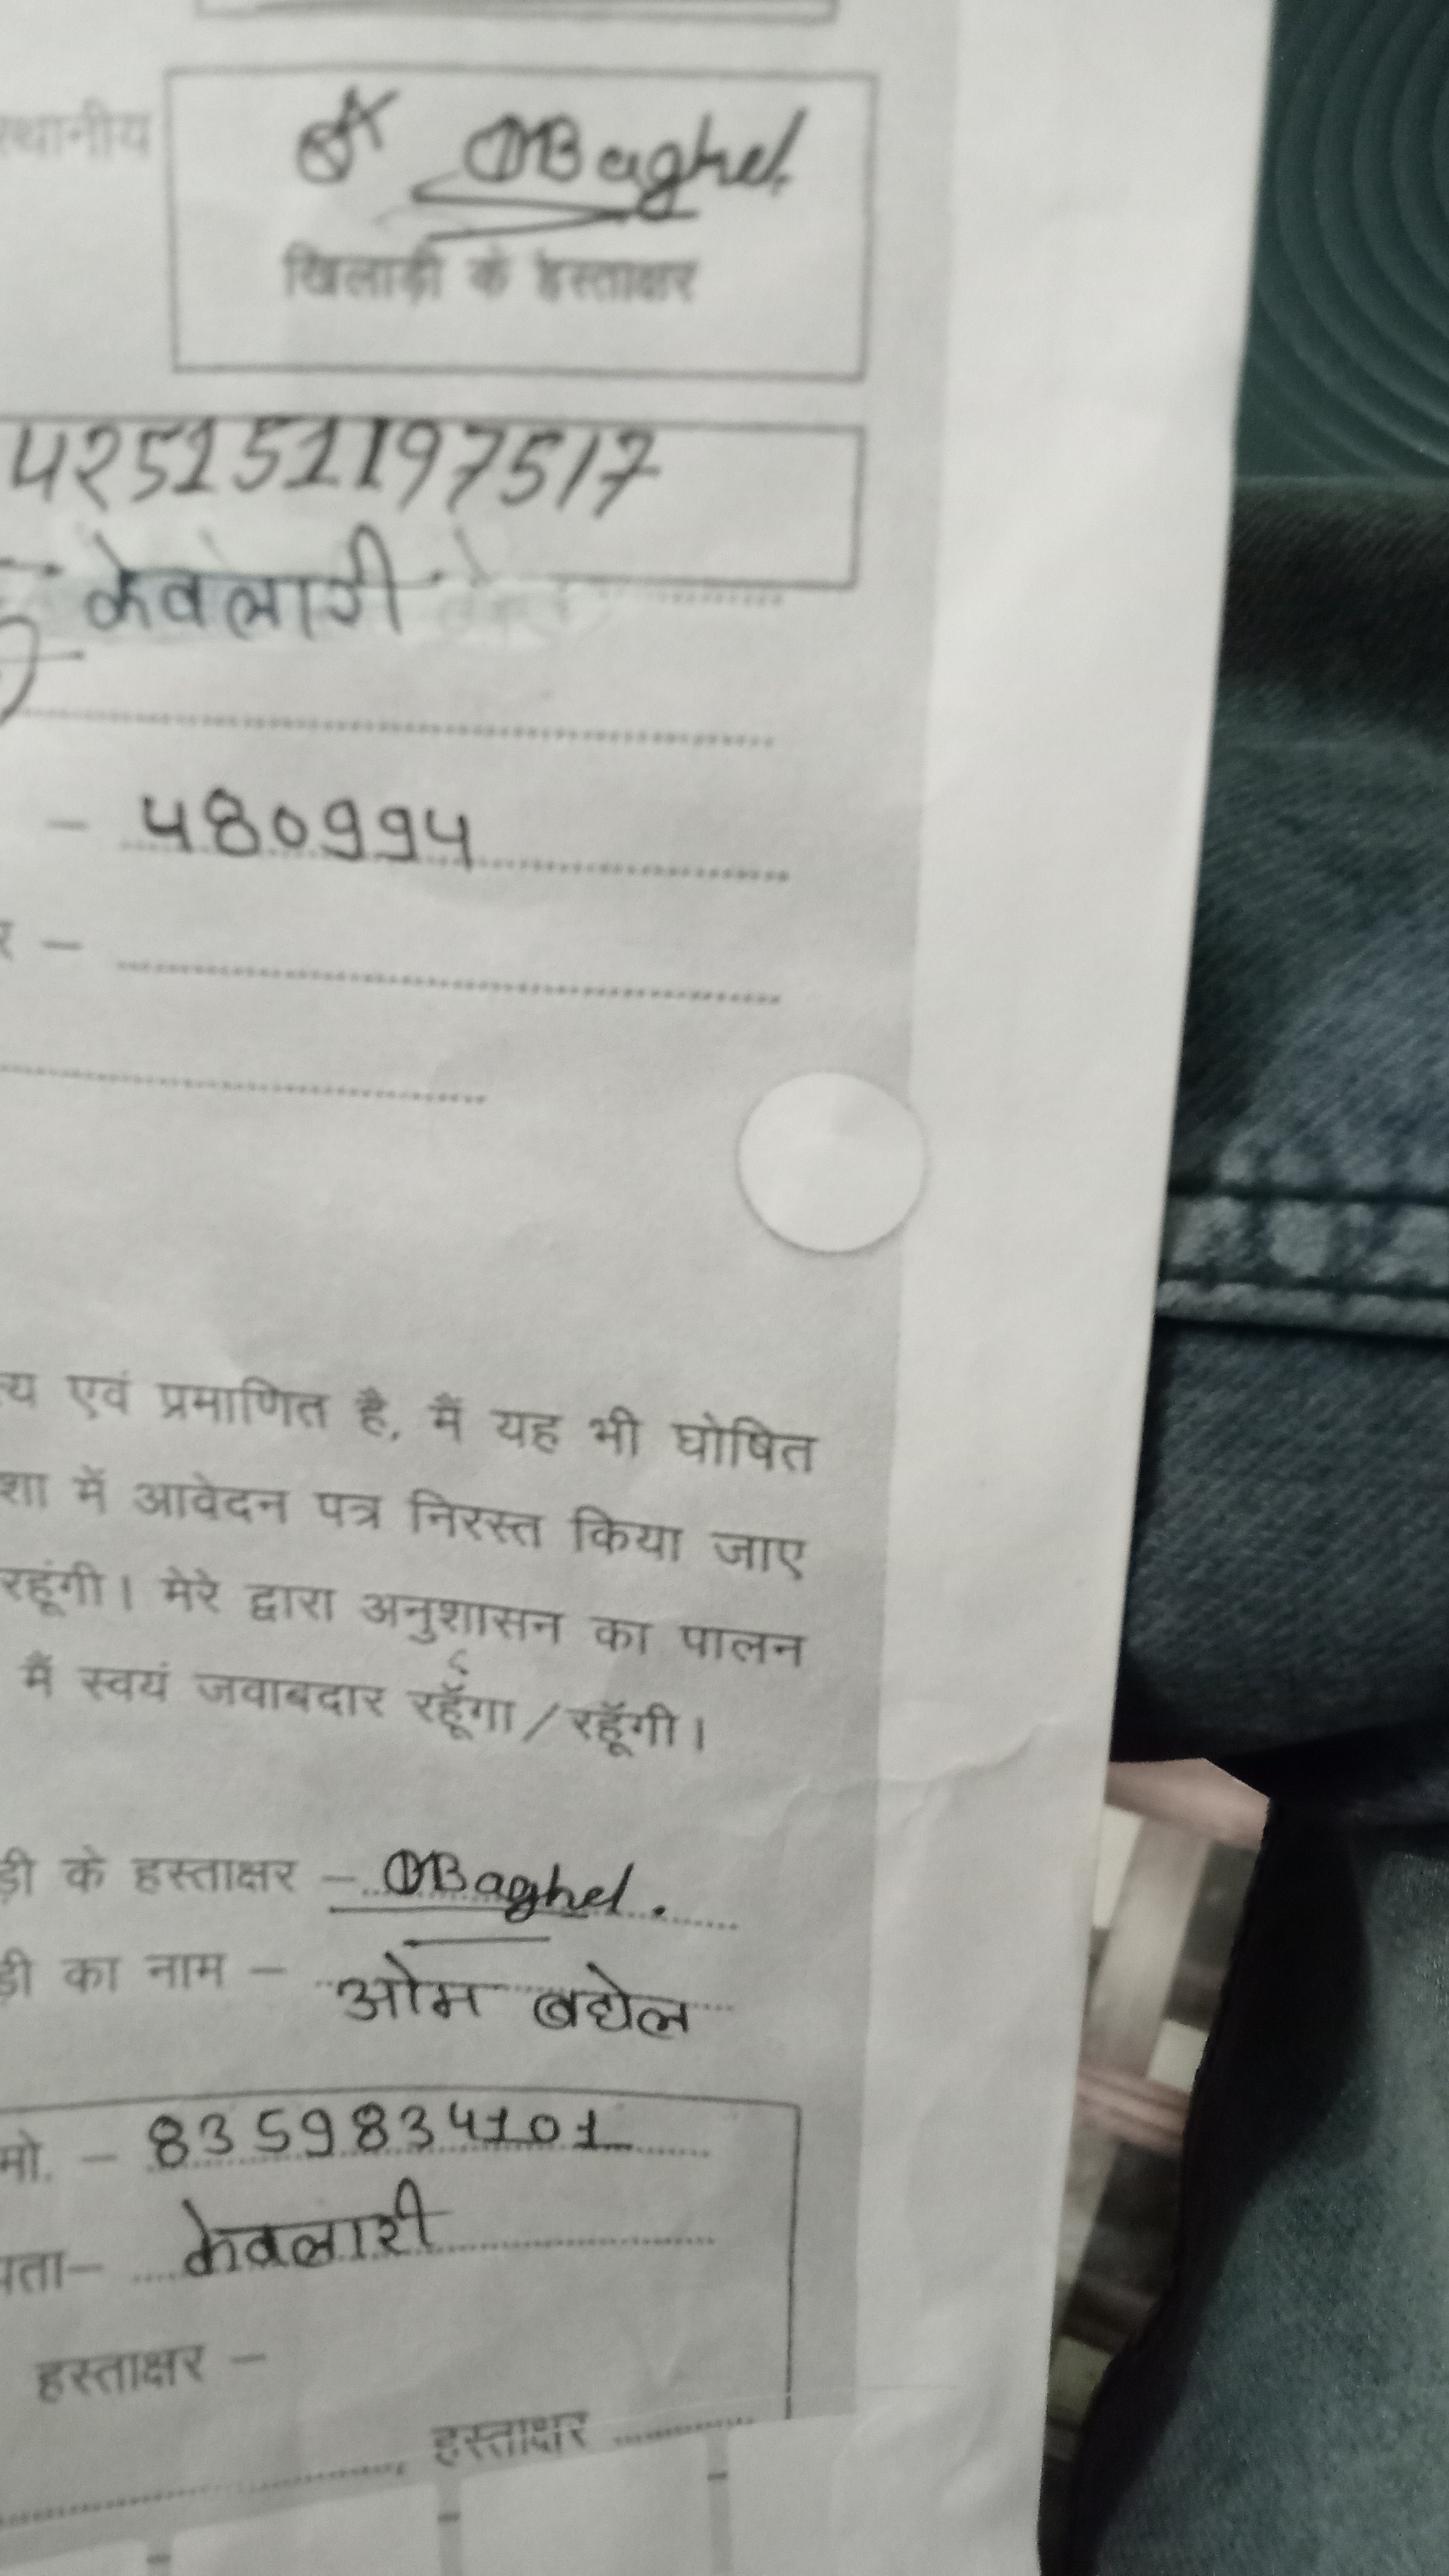 स्थानीय
OBaghel.
खिलाड़ी के हस्ताक्षर
425151197517
केवलारी
- 480994
र -
त्य एवं प्रमाणित है, मैं यह भी घोषित
शा में आवेदन पत्र निरस्त किया जाए
रहूंगी। मेरे द्वारा अनुशासन का पालन
मैं स्वयं जवाबदार रहूँगा/रहूँगी।
ड़ी के हस्ताक्षर - OBaghel.
ड़ी का नाम - ओम बघेल
मो. - 8359834101
पता- केवलारी
हस्ताक्षर -
हस्ताक्षर